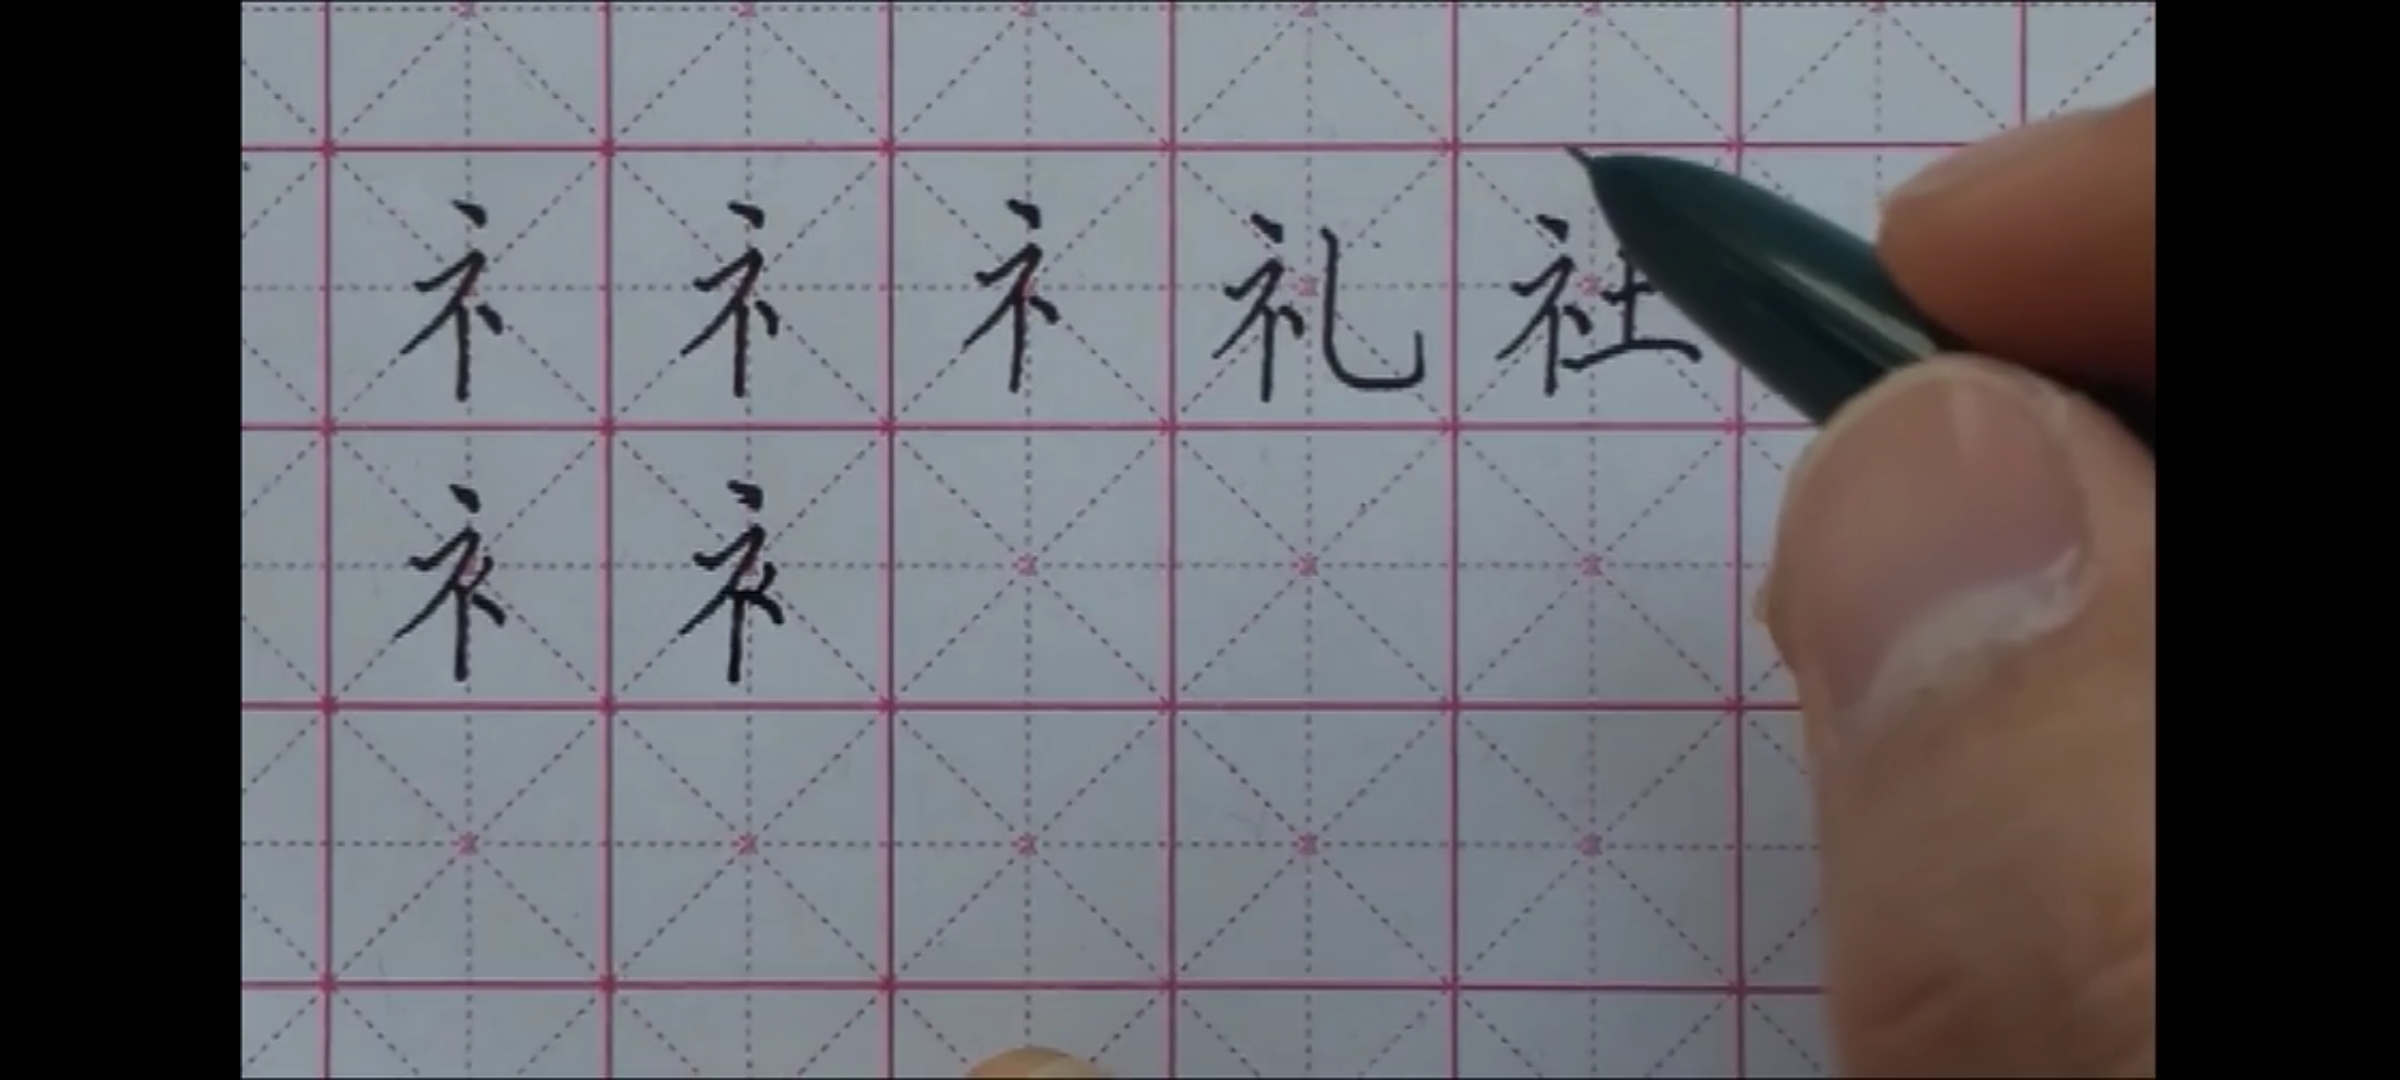 礻 礻 礻 礼 社
衤 衤